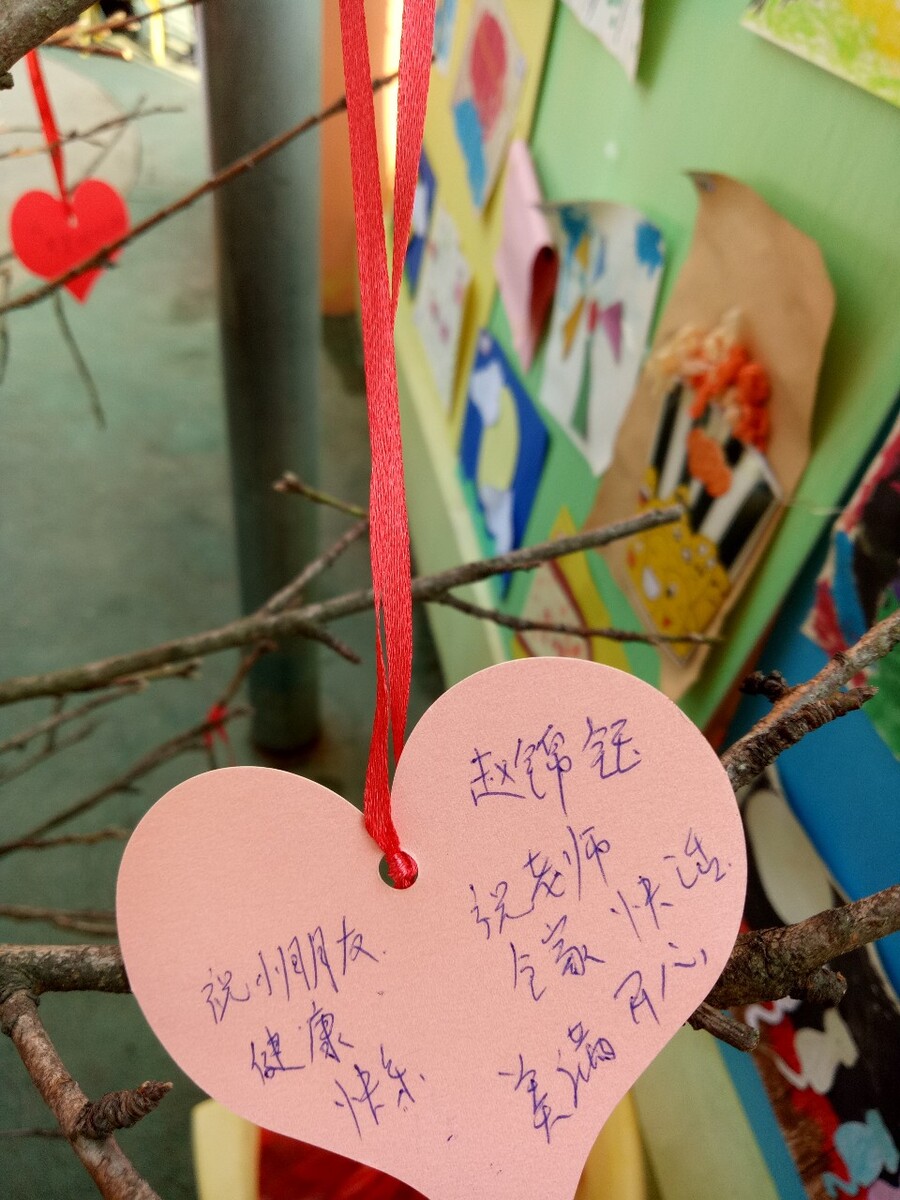 赵锦钰
祝老师
快活
全家
开心
美满
祝小朋友
健康
快乐